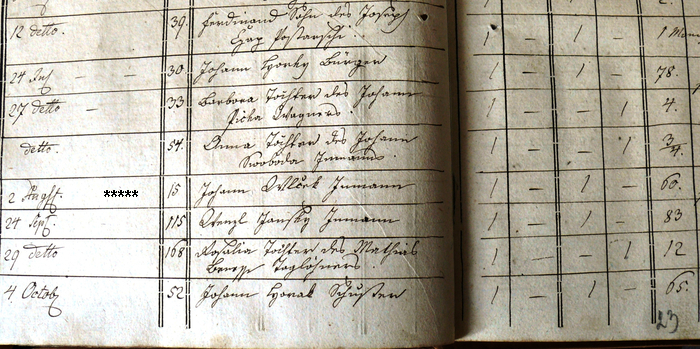 12 detto. 39. Ferdinand Sohn des Joseph 1 — 1 — 1 Mon
24 30. Johann Horky Bürger 1 — 1 — 78.
27 detto — — 33 Barbara Tochter des Johann 1 — — 1 4.
Wagners.
detto. 54. Anna Tochter des Johann 1 — — 1 3/4.
Swoboda Inmanns.
2 Augst. ***** 15 Johann Inmann 1 — 1 — 60.
24 Sept. 115 Wenzl Jansky Inmann 1 — 1 — 83
29 detto 168 Rosalia Tochter des Mathias 1 — — 1 12
Taglöhners.
4. Octob 52 Johann Horak Schuster 1 — 1 — 65.
23